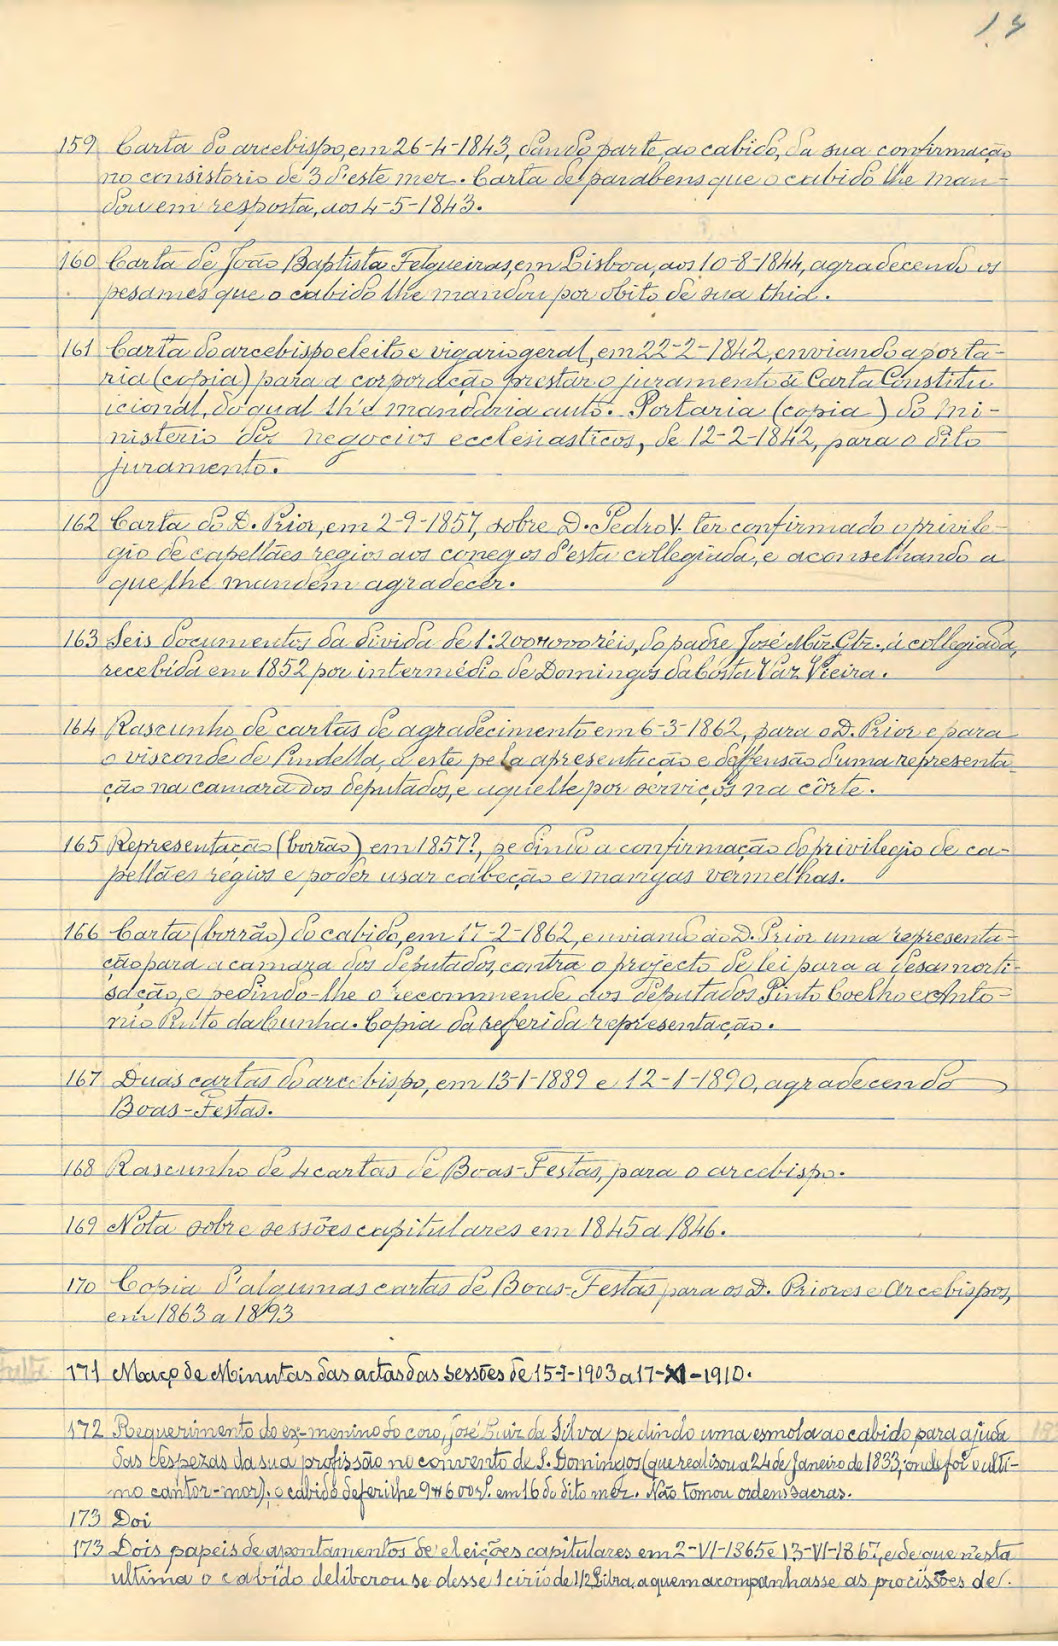 159 Carta do arcebispo, em 26-4-1843, dando parte, ao cabido, da sua confirmação
no consistorio de 3 d'este mez. Carta de parabens que o cabido lhe man-
dou em resposta, aos 4-5-1843.
160 Carta de João Baptista Felgueiras, em Lisboa, aos 10-8-1844, agradecendo os
pesames que o cabido lhe mandou por obito de sua thia.
161 Carta do arcebispo eleito e vigario geral, em 22-2-1842, enviando a porta-
ria (copia) para a corporação prestar o juramento á Carta Constitu
icional, do qual lh'e mandaria auto. Portaria (copia) do mi-
nisterio dos negocios ecclesiasticos, de 12-2-1842, para o dito
juramento.
162 Carta do D. Prior, em 2-9-1857, sobre D. Pedro V. ter confirmado o privile-
gio de capellães regios aos conegos d'esta collegiada, e aconselhando a
que lhe mandem agradecer.
163 Seis documentos da divida de 1:200#000 réis, do padre José Miz. Glz., á collegiada,
recebida em 1852 por intermédio de Domingos da Costa Vaz Vieira.
164 Rascunho de cartas de agradecimento em 6-3-1862, para o D. Prior e para
o visconde de Pindella, a este pela apresentação e deffensão d'uma representa-
ção na camara dos deputados, e aquelle por serviços na côrte.
165 Representação (borrão) em 1857?, pedindo a confirmação do privilegio de ca-
pellães regios e poder usar cabeção e mangas vermelhas.
166 Carta (borrão) do cabido, em 17-2-1862, enviando ao D. Prior uma representa-
ção para a camara dos deputados, contra o projecto de lei para a desamorti-
sação, e pedindo-lhe o recommende aos deputados Pinto Coelho e Anto-
nio Pinto da Cunha. Copia da referida representação.
167 Duas cartas do arcebispo, em 13-1-1889 e 12-1-1890, agradecendo
Boas-Festas.
168 Rascunho de 4 cartas de Boas-Festas, para o arcebispo.
169 Nota sobre sessões capitulares em 1845 a 1846.
170 Copia d'algumas cartas de Boas-Festas para os D. Priores e Arcebispos,
em 1863 a 1893
171 Maço de Minutas das actas das sessões de 15-I-1903 a 17-XI-1910.
172 Requerimento do ex-menino do coro, José Luiz da Silva pedindo uma esmola ao cabido para ajuda
das despezas da sua profissão no convento de S. Domingos (que realisou a 24 de Janeiro de 1833, onde foi o ulti-
mo cantor-mor); o cabido deferi lhe 9#600 rs. em 16 do dito mez. Não tomou ordens sacras.
173 Doi
173 Dois papeis de apontamentos de eleições capitulares em 2-VI-1865 e 13-VI-1867, e de que n'esta
ultima o cabido deliberou se desse 1 cirio de 1/2 Libra, a quem acompanhasse as procissões de